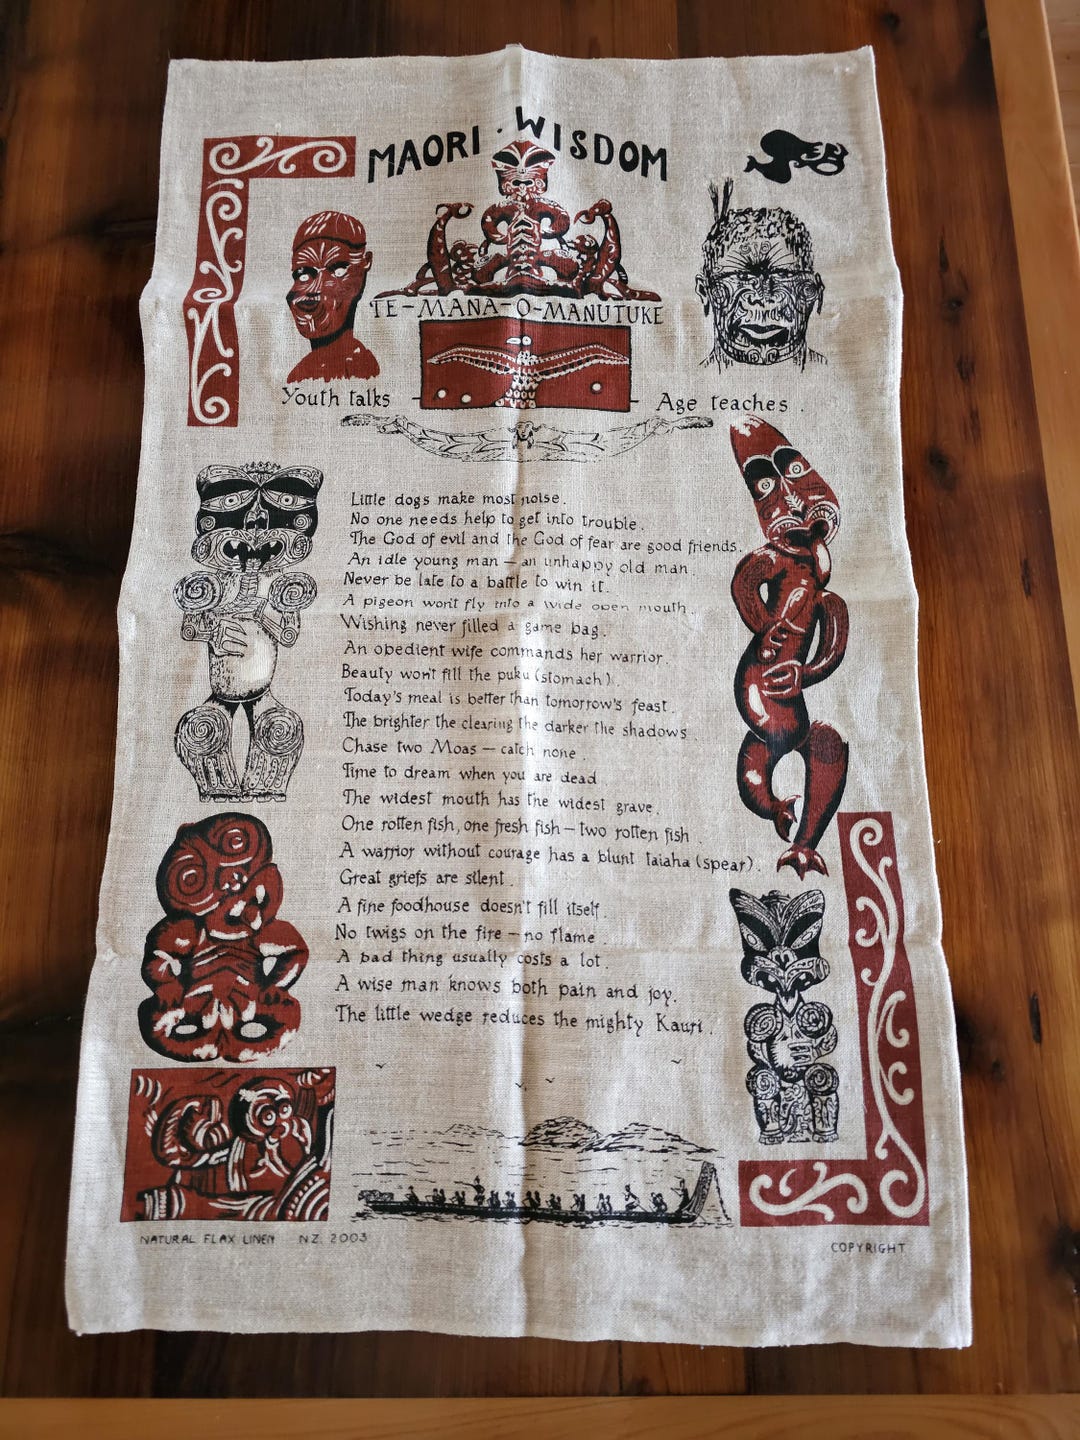 MAORI · WISDOM
TE-MANA-O-MANUTUKE
Youth talks - - Age teaches .
Little dogs make most noise .
No one needs help to get into trouble .
The God of evil and the God of fear are good friends .
An idle young man – an unhappy old man .
Never be late to a battle to win it .
A pigeon won't fly into a wide open mouth .
Wishing never filled a game bag .
An obedient wife commands her warrior .
Beauty won't fill the puku (stomach) .
Today's meal is better than tomorrow's feast .
The brighter the clearing the darker the shadows .
Chase two Moas – catch none .
Time to dream when you are dead .
The widest mouth has the widest grave .
One rotten fish, one fresh fish – two rotten fish .
A warrior without courage has a blunt taiaha (spear) .
Great griefs are silent .
A fine foodhouse doesn't fill itself .
No twigs on the fire – no flame .
A bad thing usually costs a lot .
A wise man knows both pain and joy .
The little wedge reduces the mighty Kauri .
NATURAL FLAX LINEN NZ 2003
COPYRIGHT